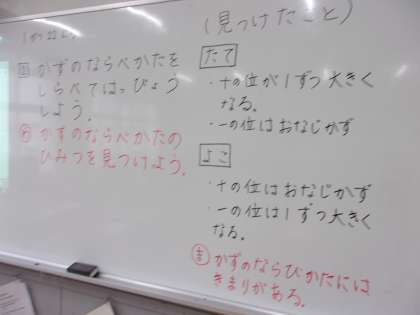 かずのならべかたを
しらべてはっぴょう
しよう。
かずのならべかたの
ひみつを見つけよう。
(見つけたこと)
たて
・十の位が1ずつ大きく
なる。
・一の位はおなじかず
よこ
・十の位はおなじかず
・一の位は1ずつ大きく
なる。
かずのならびかたには
きまりがある。